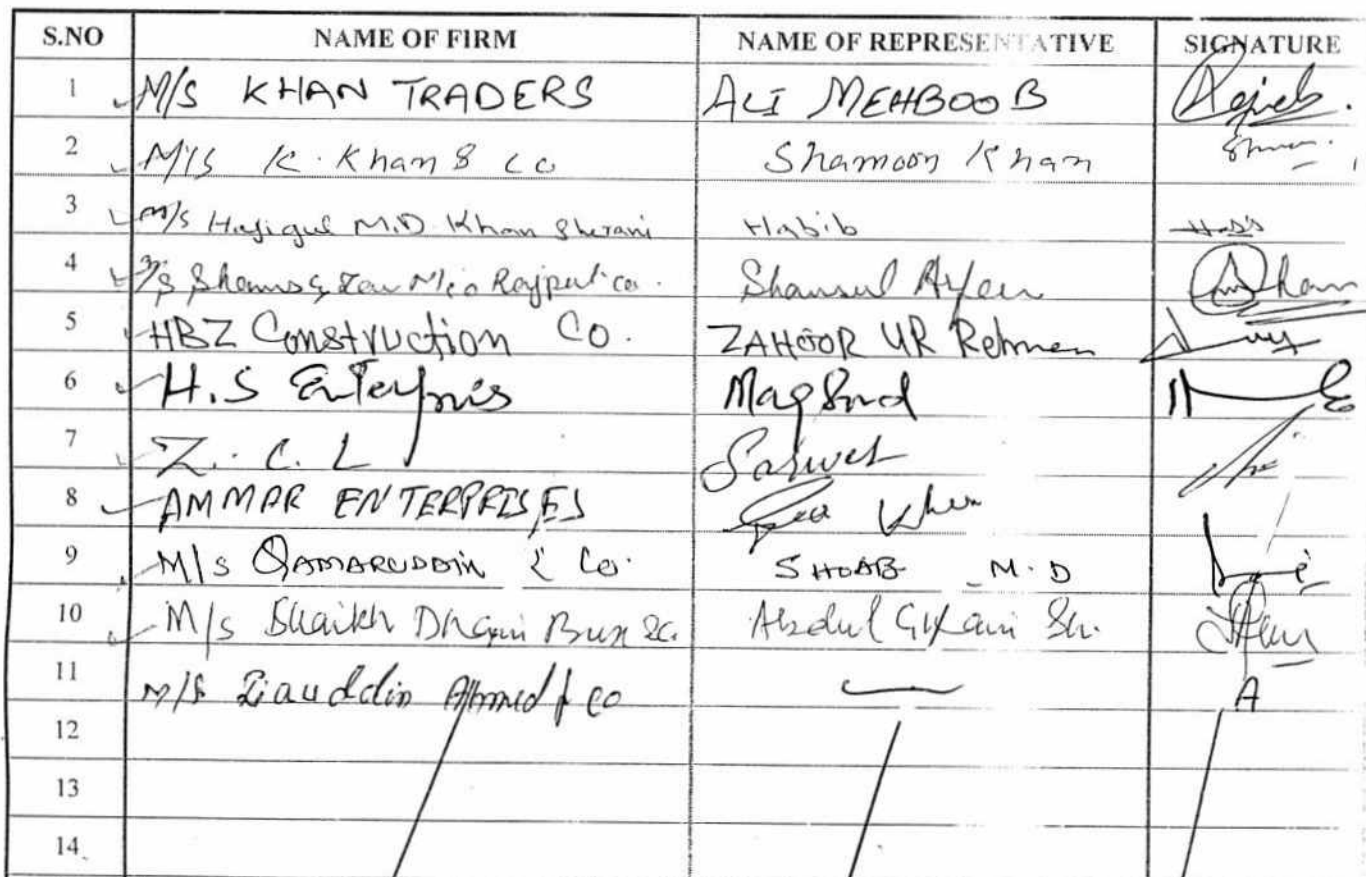 S.NO NAME OF FIRM NAME OF REPRESENTATIVE SIGNATURE
1 M/S KHAN TRADERS ALI MEHBOOB
2 M/S K. Khan & Co Shamoon Khan
3 M/s Hajigul M.D. Khan Sherani Habib
4 M/s Shams Rajput co.
5 HBZ Construction Co. ZAHOOR UR Rehman
6 H.S Enterpris Maqsud
7 Z. C. L Sarwet
8 AMMAR ENTERPRISES Khan
9 M/S QAMARUDDIN & Co. SHOAB M.D
10 M/s Shaikh Dhani Bux & C. Abdul Ghani Sh.
11 M/S Ziauddin Ahmed & co — A
12
13
14